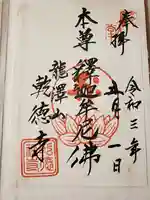 奉拝
令和三年
五月一日
本尊 釋迦牟尼佛
龍澤山
乾徳寺